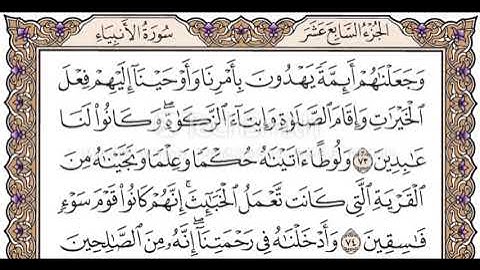 الجزء السابع عشر
سورة الأنبياء
وَجَعَلْنَاهُمْ أَئِمَّةً يَهْدُونَ بِأَمْرِنَا وَأَوْحَيْنَا إِلَيْهِمْ فِعْلَ
الْخَيْرَاتِ وَإِقَامَ الصَّلَاةِ وَإِيتَاءَ الزَّكَاةِ ۖ وَكَانُوا لَنَا
عَابِدِينَ ٧٣ وَلُوطًا آتَيْنَاهُ حُكْمًا وَعِلْمًا وَنَجَّيْنَاهُ مِنَ
الْقَرْيَةِ الَّتِي كَانَت تَّعْمَلُ الْخَبَائِثَ ۗ إِنَّهُمْ كَانُوا قَوْمَ سَوْءٍ
فَاسِقِينَ ٧٤ وَأَدْخَلْنَاهُ فِي رَحْمَتِنَا ۖ إِنَّهُ مِنَ الصَّالِحِينَ